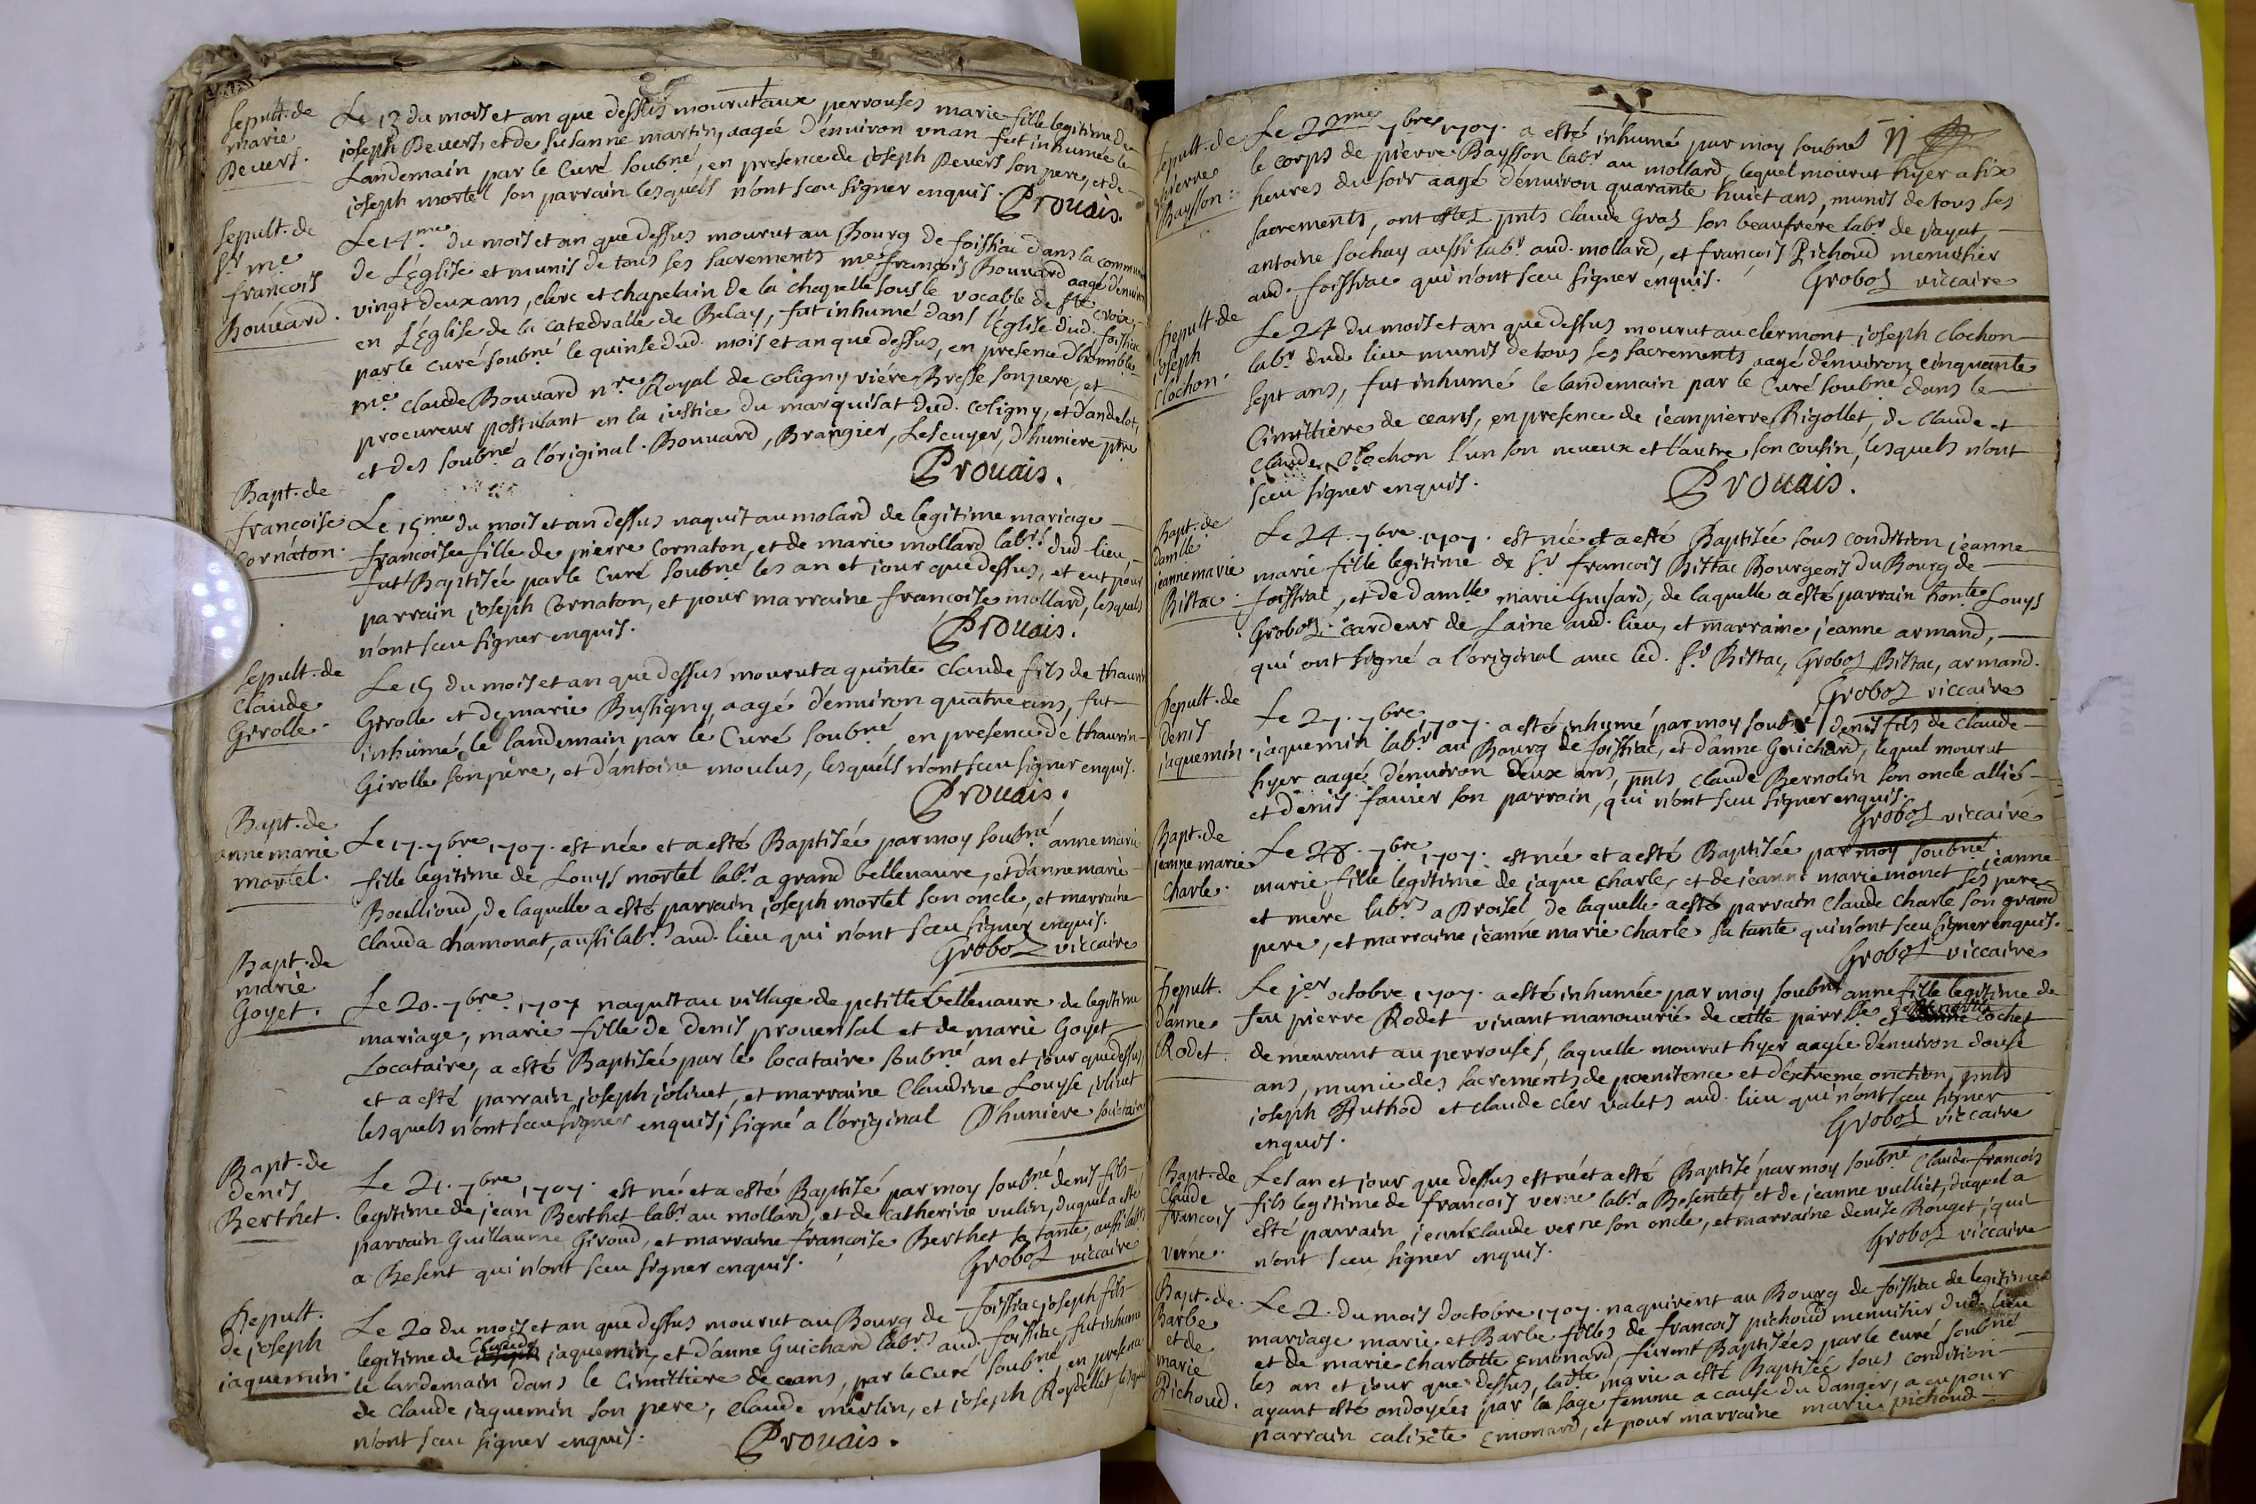 Sepult. de
marie
Bevers.
Le 13 du mois et an que dessus mourut aux perrouses marie fille legitime de
joseph Bevers, et de susanne martin, aagée d'environ un an fut inhumée le
Landemain par le Curé soubné, en presence de joseph Bevers son pere, et de
joseph mortel son parrain lesquels n'ont sceu signer enquis. Provais.
Sepult. de
Sr me
francois
Bouvard.
Le 14me du mois et an que dessus mourut au Bourg de foissiac dans la commu
de L'Eglise et munis de tous ses sacrements me françois Bouvard aagé d'environ
vingt deux ans, clerc et chapelain de la chapelle sous le vocable de ste croix
en L'Eglise de la catedralle de Belay, fut inhumé dans l'Eglise dud. foissiac
par le curé soubné le quinse dud. mois et an que dessus, en presence d'honnble
me Claude Bouvard nre Royal de coligny viére Bresse son pere, et
procureur postulant en la justice du marquisat dud. Coligny, et d'andelot,
et des soubné a l'original. Bouvard, Brangier, Lescuyer, D'huniere ptre
Provais.
Bapt. de
francoise
Cornaton.
Le 15me du mois et an dessus naquit au molard de legitime mariage
francoise fille de pierre Cornaton, et de marie mollard labrs dud lieu
fut Baptisée par le Curé soubné les an et jour que dessus, et eut pour
parrain joseph Cornaton, et pour marraine francoise mollard, lesquels
n'ont sceu signer enquis. Provais.
Sepult. de
Claude
Girolle.
Le 15 du mois et an que dessus mourut a quinte Claude fils de thaurin
Girolle et de marie Bussigny, aagé d'environ quatre ans, fut
inhumé le landemain par le Curé soubné en presence de thaurin
Girolle son pere, et d'antoine moulus, lesquels n'ont sceu signer enquis.
Provais.
Bapt. de
anne marie
mortel.
Le 17. 7bre 1707. est née et a esté Baptisée par moy soubné anne marie
fille legitime de Louys mortel labr a grand bellevavre, et d'anne marie
Boeillioud, de laquelle a esté parrain joseph mortel son oncle, et marraine
Clauda chamonat, aussi labrs aud. lieu qui n'ont sceu signer enquis.
Groboz viccaire
Bapt. de
marie
Goyet.
Le 20. 7bre. 1707 naquit au village de petitte bellevavre de legitime
mariage, marie fille de denis provensal et de marie Goyet
Locataire, a esté Baptisée par le locataire soubné an et jour que dessus,
et a esté parrain joseph jolivet, et marraine Claudine Louyse jolivet
lesquels n'ont sceu signer enquis, signé a l'original D'huniere societaire
Bapt. de
denis
Berthet.
Le 21. 7bre 1707. est né et a esté Baptisé par moy soubné denis fils
legitime de jean Berthet labr au mollard, et de catherine vulin, duquel a esté
parrain Guillaume Giroud, et marraine francoise Berthet sa tante, aussi labrs
a Besent qui n'ont sceu signer enquis. Groboz viccaire
Sepult.
de joseph
jaquemin.
Le 20 du mois et an que dessus mourut au Bourg de foissiac joseph fils
legitime de Claude jaquemin, et d'anne Guichard labrs aud. foissiac fut inhumé
le landemain dans le Cimittiere de ceans, par le Curé soubné, en presence
de Claude jaquemin son pere, Claude merlin, et joseph Roydellet lesquels
n'ont sceu signer enquis. Provais.
Sepult. de
pierre
Baysson.
Le 22me 7bre 1707. a esté inhumé par moy soubné
le corps de pierre Baysson labr au mollard, lequel mourut hyer a six
heures du soir aagé d'environ quarante huict ans, munis de tous ses
sacrements, ont estez pnts Claude Gras son beaufrére labr de jayat,
antoine sochay aussi labr aud. mollard, et francois Pichoud menusier
aud. foissiac qui n'ont sceu signer enquis. Groboz viccaire
Sepult. de
joseph
Clochon.
Le 24 du mois et an que dessus mourut au clermont joseph Clochon
labr dud. lieu munis de tous ses sacrements aagé d'environ cinquante
sept ans, fut inhumé le landemain par le Curé soubné dans le
Cimittiere de ceans, en presence de jeanpierre Rigollet, de Claude et
Claude Clochon l'un son neveux et l'autre son cousin, lesquels n'ont
sceu signer enquis. Provais.
Bapt. de
damlle
jeanne marie
Bistac.
Le 24. 7bre. 1707. est née et a esté Baptisée sous condition jeanne
marie fille legitime de Sr francois Bistac Bourgeois du Bourg de
foissiac, et de damlle marie Guyard, de laquelle a esté parrain honte Louys
Groboz cardeur de Laine aud. lieu, et marraine jeanne armand,
qui ont signé a l'original avec led. Sr Bistac, Groboz, Bistac, armand.
Groboz viccaire
Sepult. de
denis
jaquemin.
Le 27. 7bre 1707. a esté inhumé par moy soubné denis fils de Claude
jaquemin labr au Bourg de foissiac, et d'anne Guichard, lequel mourut
hyer aagé d'environ deux ans, pnts Claude Bernolin son oncle allié
et denis favier son parrain, qui n'ont sceu signer enquis.
Groboz viccaire
Bapt. de
jeanne marie
Charle.
Le 28. 7bre 1707. est née et a esté Baptisée par moy soubné jeanne
marie fille legitime de jaque Charle, et de jeanne marie monet ses pere
et mere labrs a Broisel de laquelle a esté parrain Claude Charle son grand
pere, et marraine jeanne marie Charle sa tante qui n'ont sceu signer enquis.
Groboz viccaire
Sepult.
d'anne
Rodet.
Le jer octobre 1707. a esté inhumée par moy soubné anne fille legitime de
feu pierre Rodet vivant manouvrié de cette parrsse et Cochet
demeurant au perrouses, laquelle mourut hyer aagée d'environ douse
ans, munie des sacrements de poenitence et d'extreme onction, pnts
joseph Authod et Claude Cler valets aud. lieu qui n'ont sceu signer
enquis. Groboz viccaire
Bapt. de
Claude
francois
verne.
Les an et jour que dessus est né et a esté Baptisé par moy soubné Claude francois
fils legitime de francois verne labr a Besentet, et de jeanne vulliet, duquel a
esté parrain jeanclaude verne son oncle, et marraine denise Rouget, qui
n'ont sceu signer enquis. Groboz viccaire
Bapt. de
Barbe
et de
marie
Pichoud.
Le 2. du mois d'octobre 1707. naquirent au Bourg de foissiac de legitime
mariage marie et Barbe filles de francois pichoud menuisier dud. lieu
et de marie charlotte Emonard, furent Baptisées par le curé soubné
les an et jour que dessus, ladte marie a esté Baptisée sous condition
ayant esté ondoyées par la sage femme a cause du danger, a eu pour
parrain calixte Emonard, et pour marraine marie pichoud